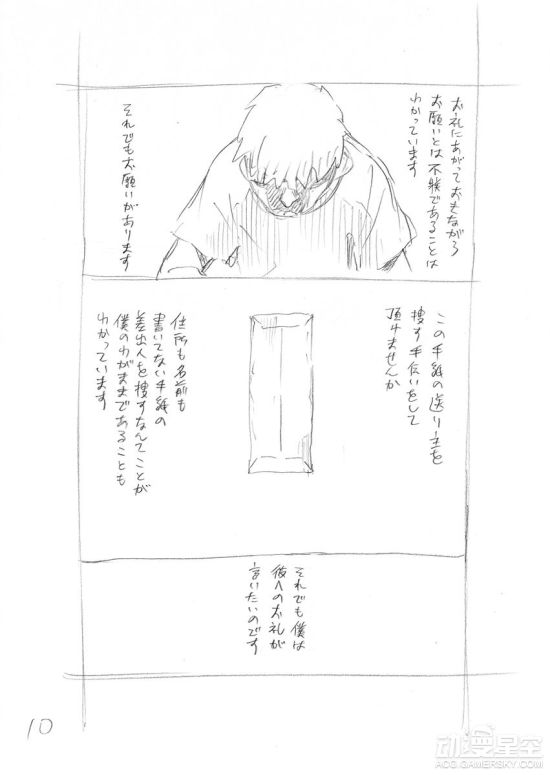 お礼にあがっておきながら
お願いとは不躾であることは
わかっています
それでもお願いがあります
この手紙の送り主を
捜す手伝いをして
頂けませんか
住所も名前も
書いてない手紙の
差出人を捜すなんてことが
僕のわがままであることも
わかっています
それでも僕は
彼へのお礼が
言いたいのです
10
动漫星空
ACG.GAMERSKY.COM